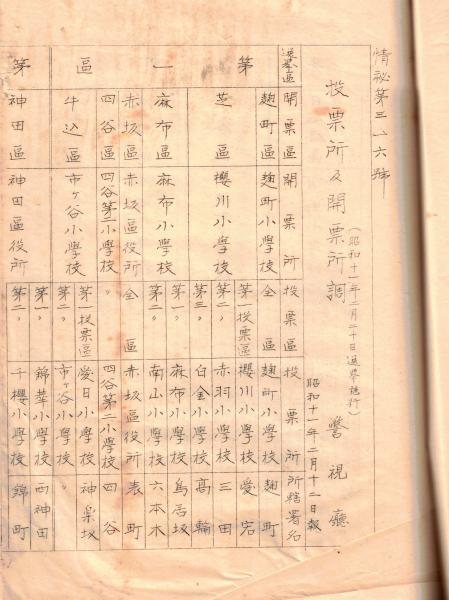 情祕第三一六號
投票所及開票所調
警視廳
(昭和十一年二月二十日選擧施行)
昭和十一年二月十二日報
選擧區 開票區 開票所 投票區 投票所 所轄署名
第一區 麹町區 麹町小學校 全區 麹町小學校 麹町
芝區 櫻川小學校 第一投票區 櫻川小學校 愛宕
第二〃 赤羽小學校 三田
第三〃 白金小學校 高輪
麻布區 麻布小學校 第一〃 麻布小學校 鳥居坂
第二〃 南山小學校 六本木
赤坂區 赤坂區役所 全區 赤坂區役所 表町
四谷區 四谷第二小學校 〃 四谷第二小學校 四谷
牛込區 市ヶ谷小學校 第一投票區 愛日小學校 神楽坂
第二〃 市ヶ谷小學校 〃
第 神田區 神田區役所 第一〃 錦華小學校 西神田
第二〃 千櫻小學校 錦町